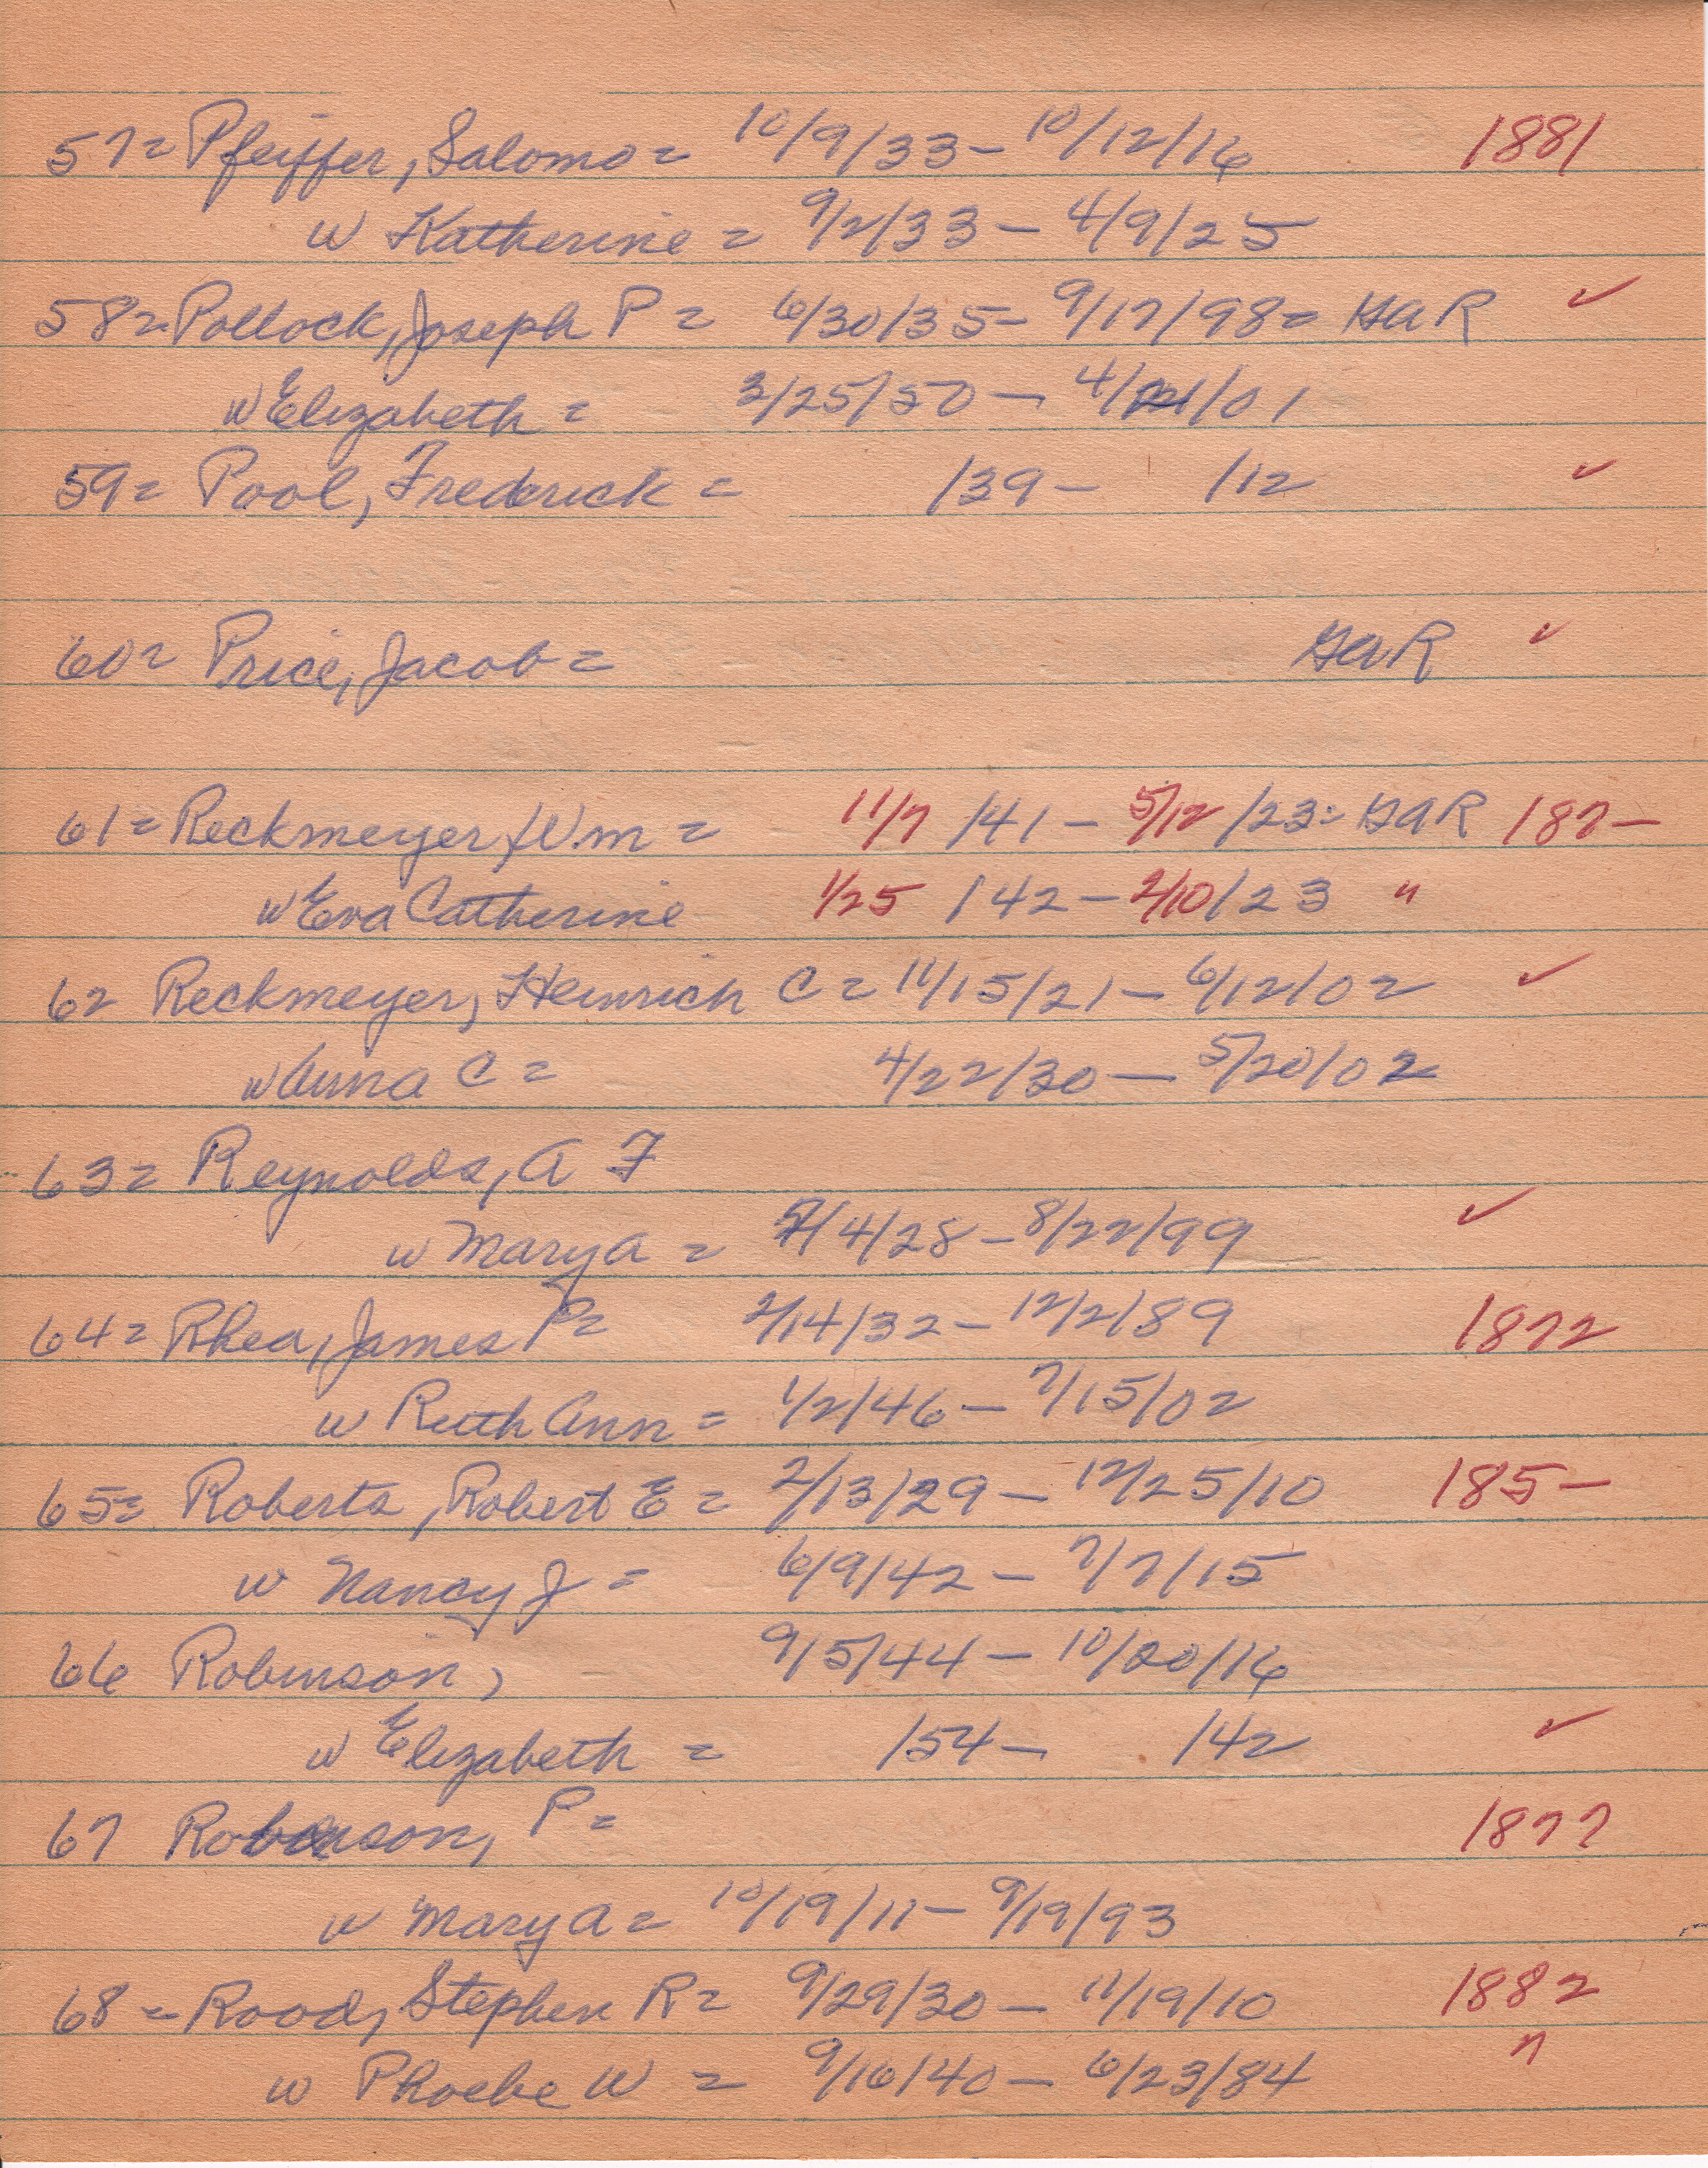 57= Pfeiffer, Salomo = 10/9/33 - 10/12/16 1881
w Katherine = 9/2/33 - 4/9/25
58= Pollock, Joseph P = 6/30/35 - 9/17/98 = GaR ✓
w Elizabeth = 3/25/50 - 4/ /01
59= Pool, Frederick = /39 - /12 ✓
60= Price, Jacob = GaR ✓
61= Reckmeyer, Wm = 11/7 /41 - 5/12 /23 = GaR 187-
w Eva Catherine 1/25 /42 - 2/10/23 "
62 Reckmeyer, Heinrich C = 11/15/21 - 6/12/02 ✓
w Anna C = 4/22/30 - 5/20/02
63= Reynolds, A F
w Mary A = /4/28 - 8/22/99 ✓
64= Rhea, James P = 2/14/32 - 12/2/89 1872
w Ruth Ann = 1/2/46 - 7/15/02
65= Roberts, Robert E = 2/13/29 - 12/25/10 185-
w Nancy J = 6/9/42 - 7/7/15
66 Robinson, 9/5/44 - 10/20/16
w Elizabeth = /54 - /42 ✓
67 Robinson, P = 1877
w Mary A = 10/19/11 - 9/19/93
68 = Rood, Stephen R = 9/29/30 - 11/19/10 1882
w Phoebe W = 9/16/40 - 6/23/84 "